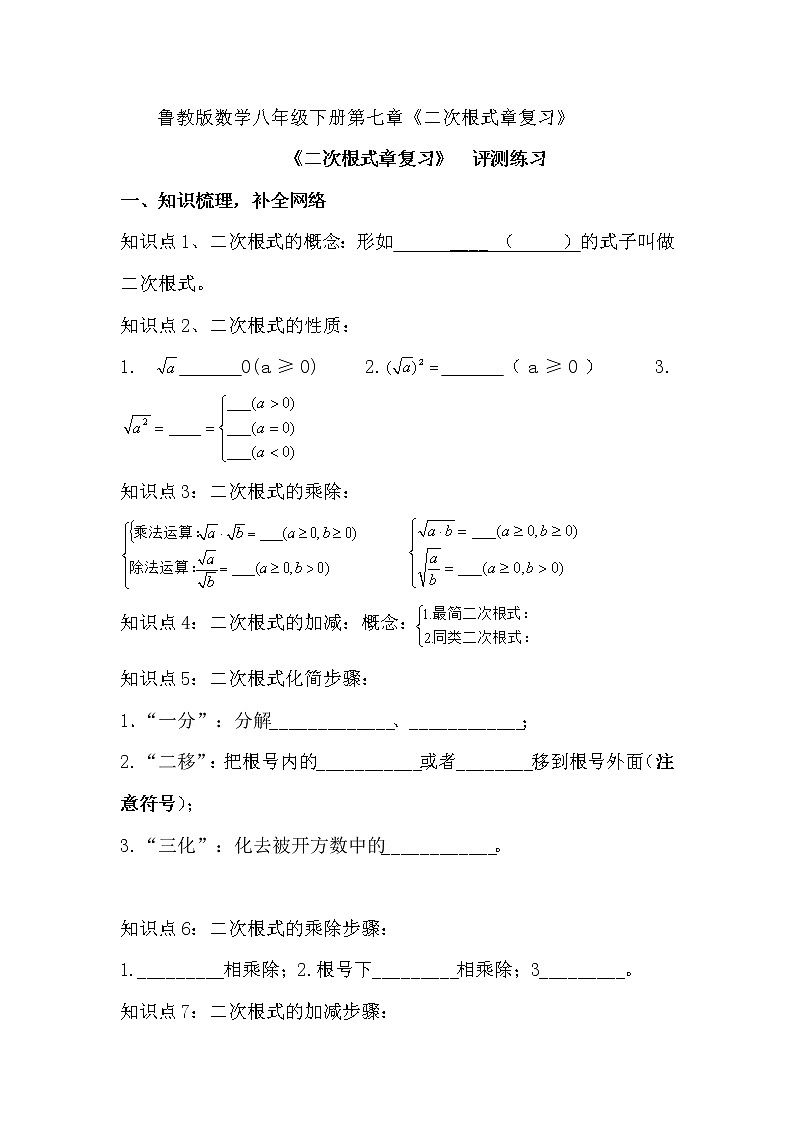 鲁教版数学八年级下册第七章《二次根式章复习》
《二次根式章复习》 评测练习
一、知识梳理，补全网络
知识点1、二次根式的概念：形如__________（      ）的式子叫做
二次根式。
知识点2、二次根式的性质：
1. √a______0(a≥0) 2.(√a)²=______（a≥0） 3.
√a²=____={___(a>0)
___(a=0)
___(a<0)
知识点3：二次根式的乘除：
{乘法运算:√a·√b=___(a≥0,b≥0) {√(a·b)=___(a≥0,b≥0)
除法运算:√a/√b=___(a≥0,b>0) √(a/b)=___(a≥0,b>0)
知识点4：二次根式的加减：概念：{1.最简二次根式：
2.同类二次根式：
知识点5：二次根式化简步骤：
1.“一分”：分解_____________、____________；
2.“二移”：把根号内的___________或者________移到根号外面（注
意符号）；
3.“三化”：化去被开方数中的____________。
知识点6：二次根式的乘除步骤：
1._________相乘除；2.根号下_________相乘除；3_________。
知识点7：二次根式的加减步骤：